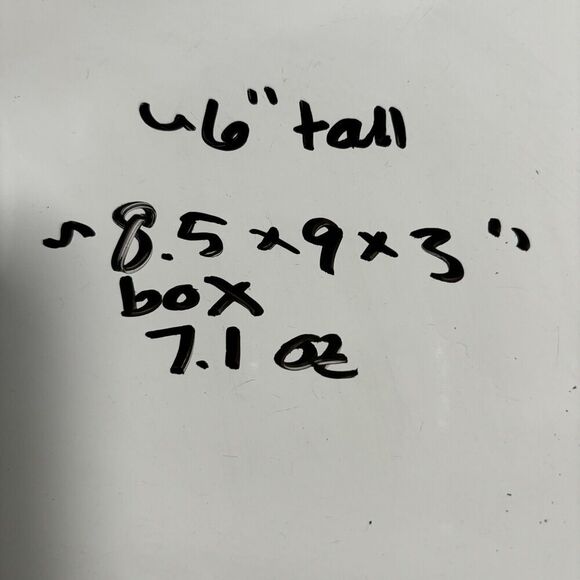 ~6" tall
~8.5x9x3"
box
7.1 oz